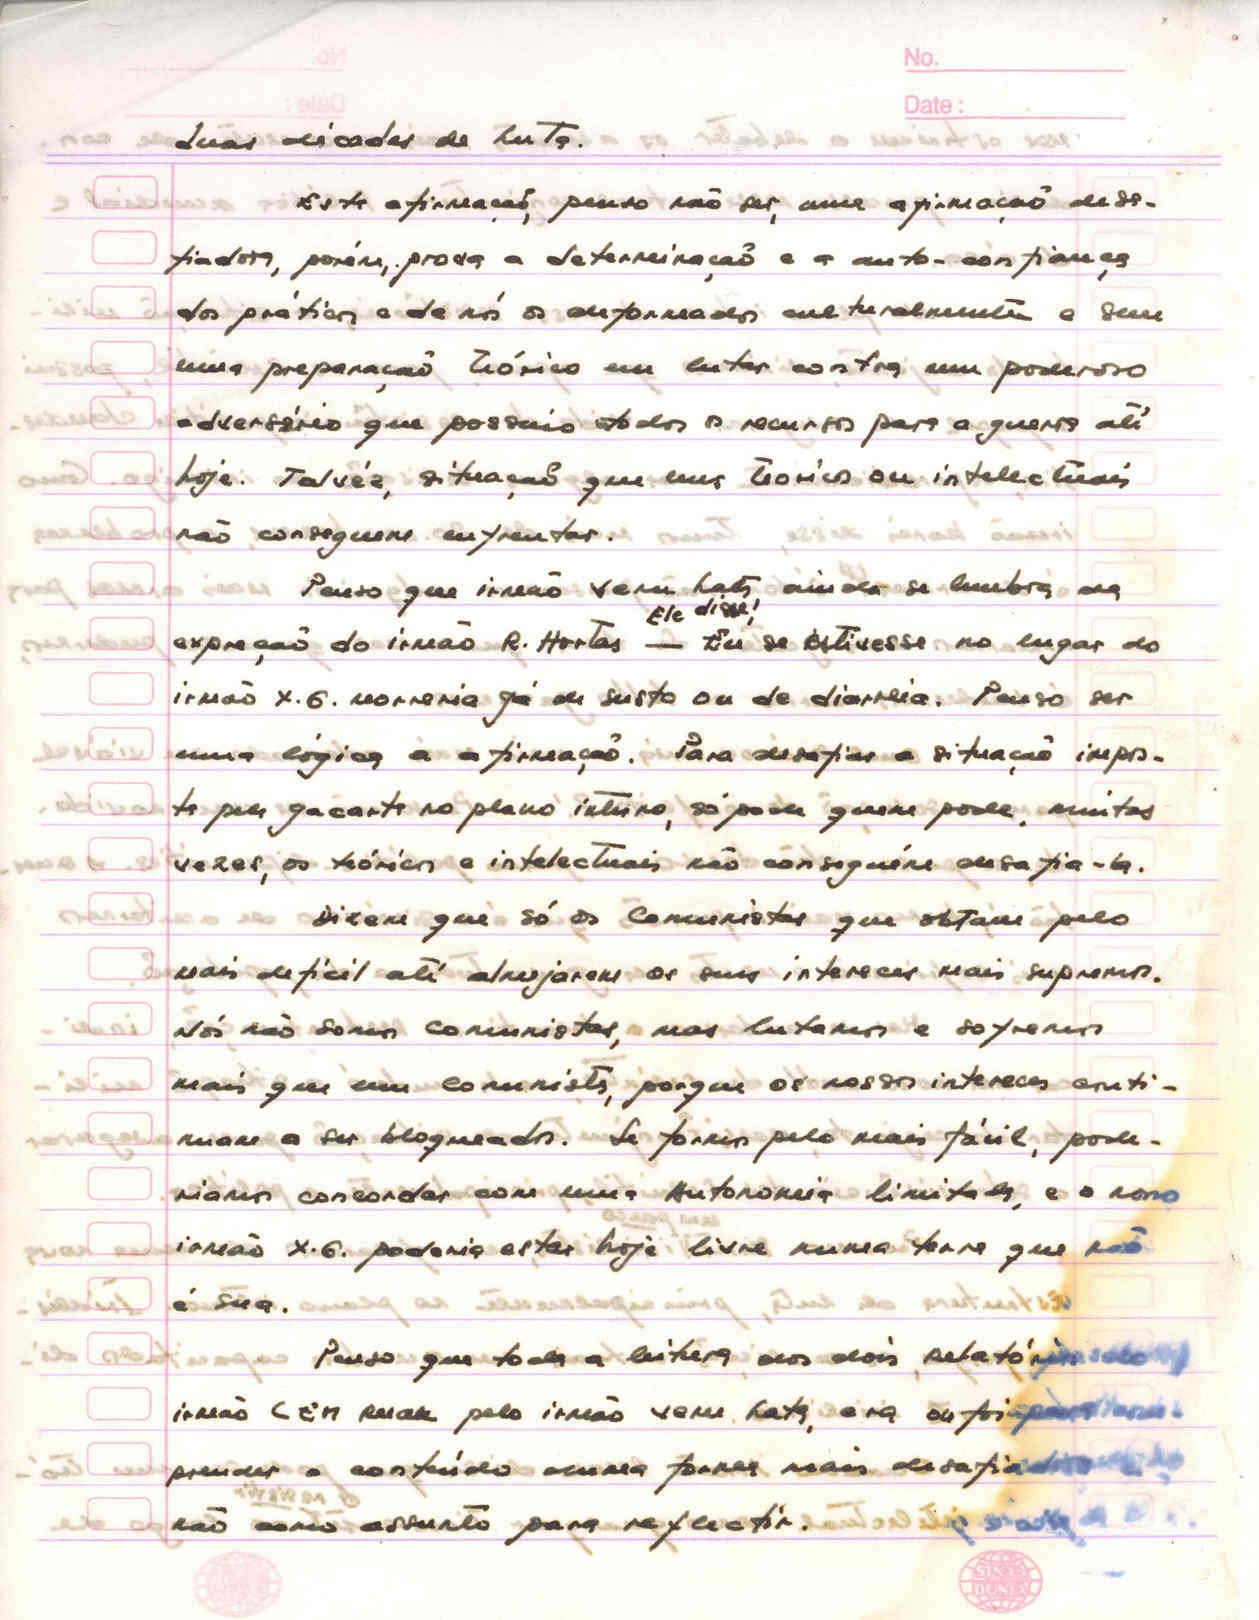 No.
Date:
duas décadas de luta.
Esta afirmação, penso não ser, uma afirmação desa-
fiadora, porém, prova a determinação e a auto-confiança
dos práticos e de nós os deformados culturalmente e sem
uma preparação teórica em lutar contra um poderoso
adversário que possuio todos os recursos para a guerra até
hoje. Talvéz, situação que uns teoricos ou intelectuais
não conseguem enfrentar.
Penso que irmão Vem hata ainda se lembra da
Ele disse!
expreção do irmão R. Hortas — Eu se Estivesse no lugar do
irmão X.G. morreria já de susto ou de diarreia. Penso ser
uma lógica a afirmação. Para desafiar a situação impos-
ta pelo jacarta no plano interno, só pode quem pode, muitas
vezes, os teóricos e intelectuais não conseguém desafia-la.
Dizem que só os Comunistas que obtam pelo
mais deficil até almejarem os seus intereces mais supremos.
Nós não somos comunistas, mas lutamos e sofremos
mais que um comunista, porque os nossos intereces conti-
nuam a ser bloqueados. Se formos pelo mais fácil, pode-
riamos concordar com uma Autonomia limitada, e o nosso
irmão X.G. poderia estar hoje livre numa terra que não
é sua.
Penso que toda a leitura dos dois relatórios do
irmão CEM RUAK pelo irmão Vem hata, era ou foi para
prender o conteúdo numa forma mais
não como assunto para reflectir.
SINAR
DUNIA